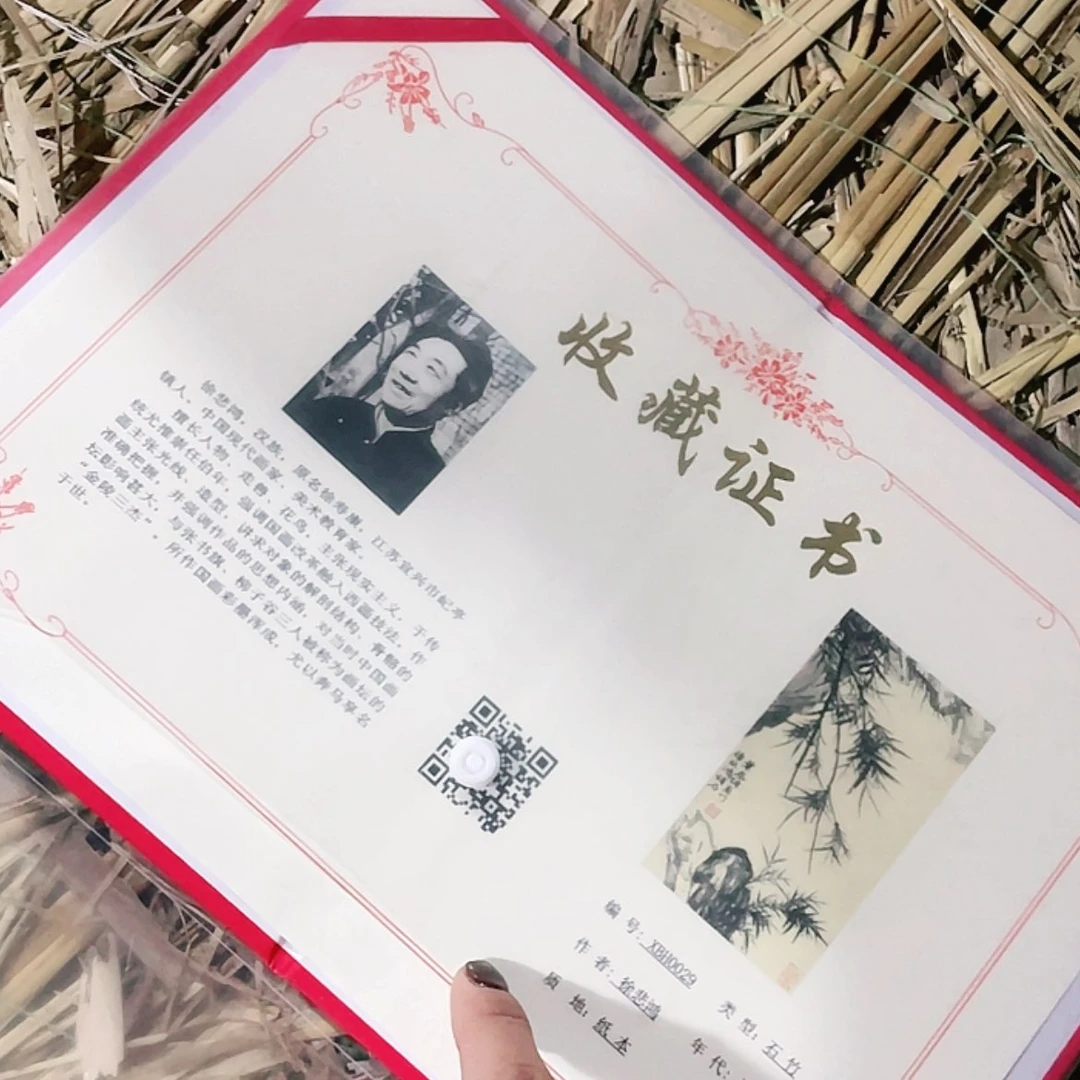 收藏证书
徐悲鸿，汉族，原名徐寿康，江苏宜兴市屺亭
镇人。中国现代画家、美术教育家。
擅长人物、走兽、花鸟，主张现实主义，于传
统尤推崇任伯年，强调国画改革融入西画技法，作
画主张光线、造型，讲求对象的解剖结构、骨骼的
准确把握，并强调作品的思想内涵，对当时中国画
坛影响甚大，与张书旗、柳子谷三人被称为画坛的
“金陵三杰”。所作国画彩墨浑成，尤以奔马享名
于世。
编号：XBH0029 类型：石竹
作者：徐悲鸿 年代：
质地：纸本